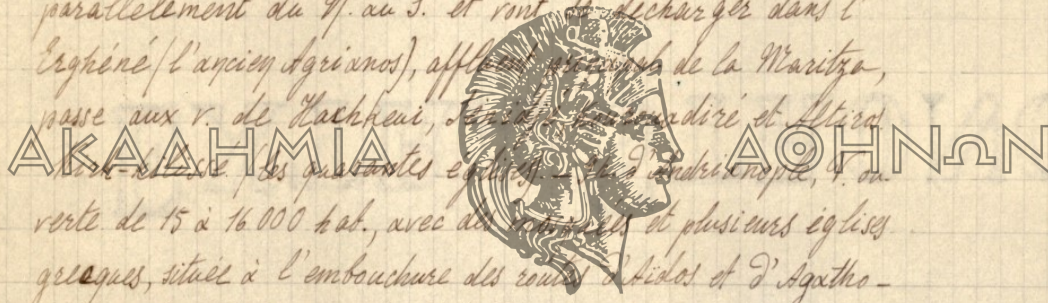 parallèlement du N. au S. et vont se décharger dans l'
Erghéné (l'ancien Agrianos), affluent principal de la Maritza,
passe aux v. de Hachkeui, et Altiros
ΑΚΑΔΗΜΙΑ ΑΘΗΝΩΝ
(les quarantes églises). — d'Andrinople, V. ou-
verte de 15 à 16.000 hab., avec des mosquées et plusieurs églises
grecques, située à l'embouchure des routes d'Aïdos et d'Agatho-